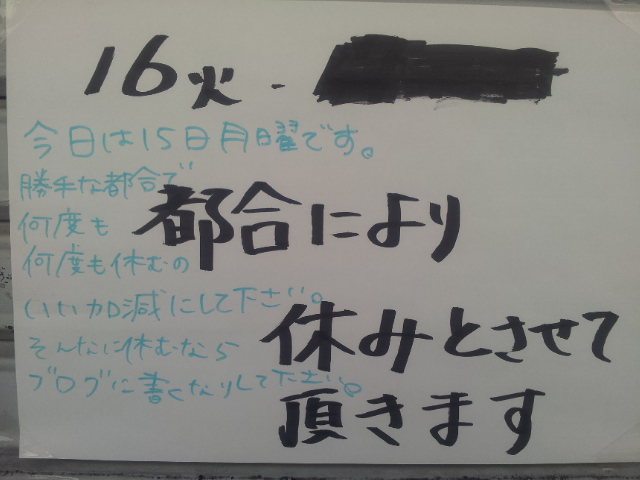 16火.
今日は15日月曜です。
勝手な都合で
何度も
何度も休むの
いい加減にして下さい。
そんなに休むなら
ブログに書くなりして下さい。
都合により
休みとさせて
頂きます